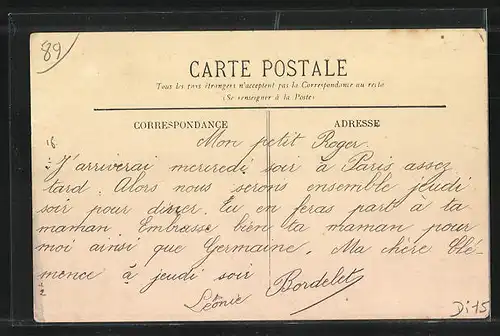 89
CARTE POSTALE
Tous les pays étrangers n'acceptent pas la Correspondance au recto
(Se renseigner à la Poste)
CORRESPONDANCE
ADRESSE
Mon petit Roger
J'arriverai mercredi soir à Paris assez
tard. Alors nous serons ensemble jeudi
soir pour dîner. Tu en feras part à ta
maman. Embrasse bien ta maman pour
moi ainsi que Germaine. Ma chère Clé-
mence à jeudi soir
Léonie Bordelet
Di 15